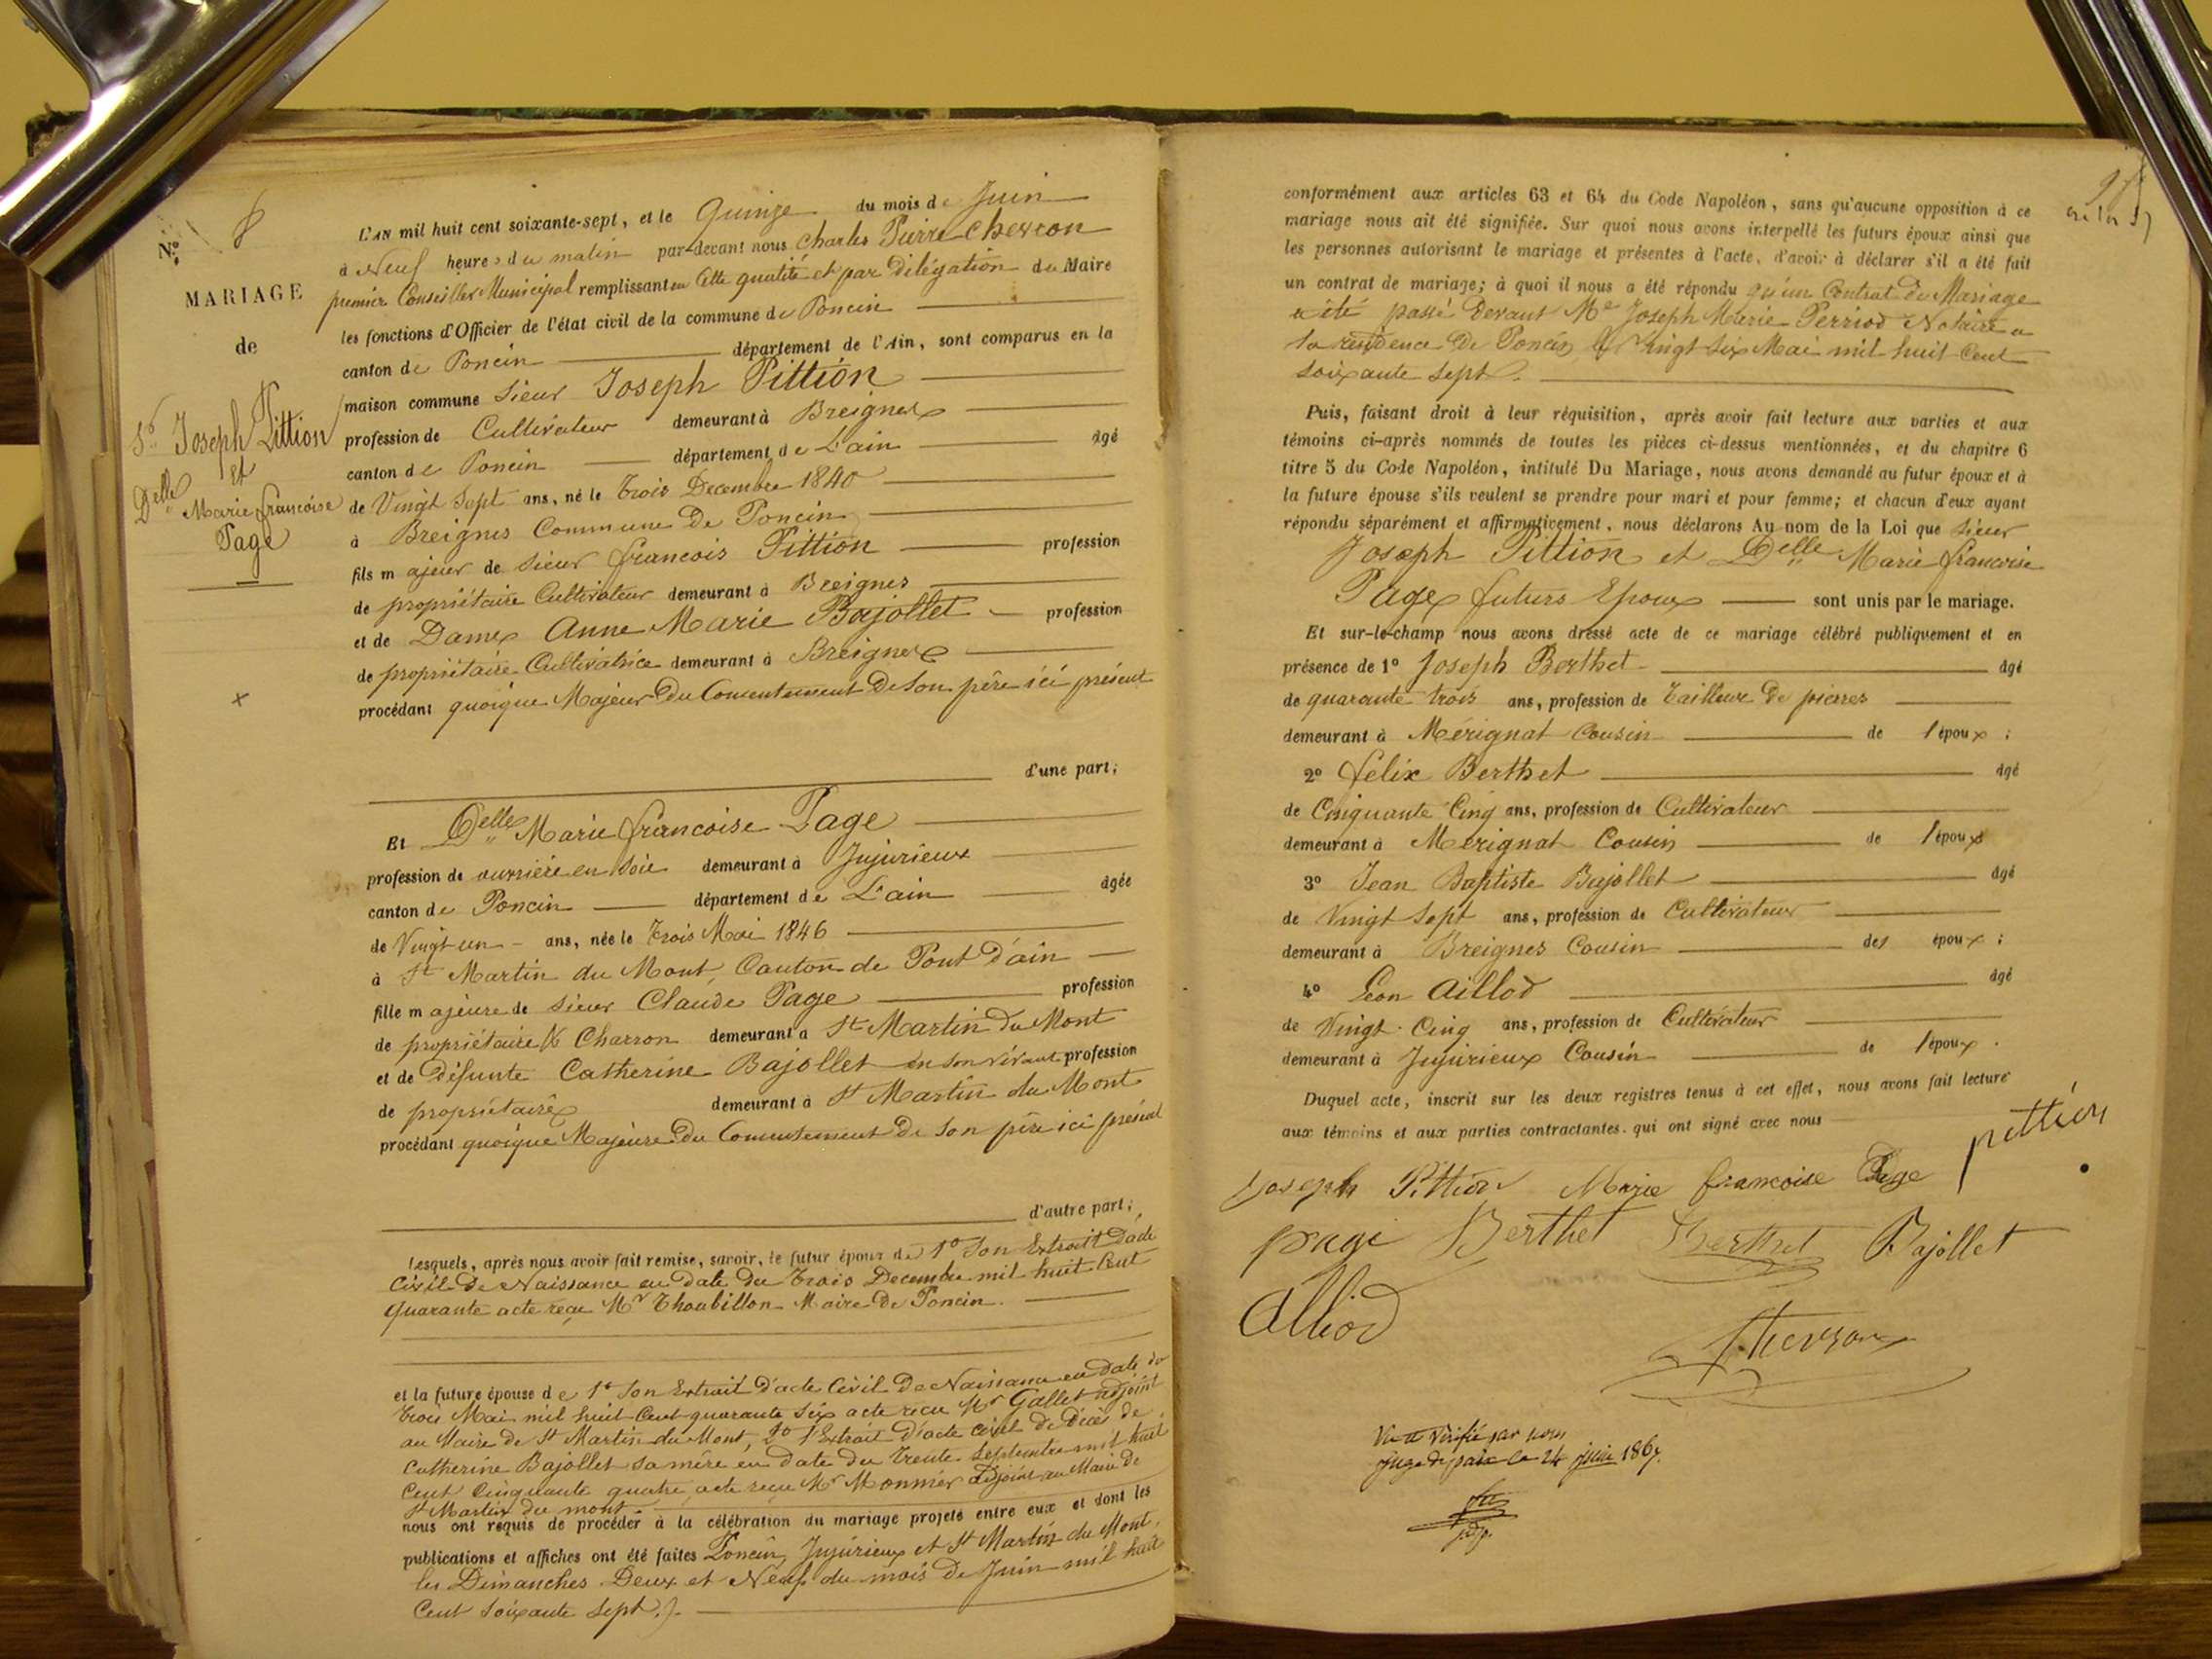 N.º 8
MARIAGE
de
Sr Joseph Pittion
et
Delle Marie françoise
Page
L'AN mil huit cent soixante-sept, et le Quinze du mois de Juin
à Neuf heures du matin par-devant nous Charles Pierre Chevron
premier Conseiller Municipal remplissant en Cette qualité et par Délégation du Maire
les fonctions d'Officier de l'état civil de la commune de Poncin
canton de Poncin département de l'Ain, sont comparus en la
maison commune Sieur Joseph Pittion
profession de Cultivateur demeurant à Breignes
canton de Poncin département de L'ain âgé
de Vingt Sept ans, né le Trois Decembre 1840
à Breignes Commune De Poncin
fils majeur de Sieur françois Pittion profession
de propriétaire Cultivateur demeurant à Breignes
et de Dame Anne Marie Bajollet profession
de propriétaire Cultivatrice demeurant à Breignes
procédant quoique Majeur Du Consentement De Son père ici présent
d'une part;
Et Delle Marie françoise Page
profession de ouvrière en Soie demeurant à Jujurieux
canton de Poncin département de L'ain âgée
de Vingt un ans, née le Trois Mai 1846
à St Martin du Mont Canton de Pont D'ain
fille majeure de Sieur Claude Page profession
de propriétaire & Charron demeurant à St Martin Du Mont
et de Défunte Catherine Bajollet en Son vivant profession
de propriétaire demeurant à St Martin du Mont
procédant quoique Majeure Du Consentement De Son père ici présent
d'autre part;
Lesquels, après nous avoir fait remise, savoir, le futur époux de 1º Son Extrait D'acte
Civil De Naissance en Date du Trois Decembre mil huit Cent
quarante acte reçu Mr Thoubillon Maire De Poncin.
et la future épouse de 1º Son Extrait D'acte Civil De Naissance en Date du
Trois Mai mil huit Cent quarante Six acte reçu Mr Gallet adjoint
au Maire de St Martin du Mont, 2º l'Extrait D'acte Civil De Décès de
Catherine Bajollet Sa mère en Date du Trente Septembre mil huit
Cent Cinquante quatre acte reçu Mr Monnier Adjoint au Maire De
St Martin du mont.
nous ont requis de procéder à la célébration du mariage projeté entre eux et dont les
publications et affiches ont été faites Poncin, Jujurieux et St Martin du Mont,
les Dimanches Deux et Neuf du mois De Juin mil huit
Cent Soixante Sept.
conformément aux articles 63 et 64 du Code Napoléon, sans qu'aucune opposition à ce
mariage nous ait été signifiée. Sur quoi nous avons interpellé les futurs époux ainsi que
les personnes autorisant le mariage et présentes à l'acte, d'avoir à déclarer s'il a été fait
un contrat de mariage; à quoi il nous a été répondu qu'un Contrat De Mariage
a été passé Devant Me Joseph Marie Perriod Notaire a
la residence De Poncin le Vingt Six Mai mil huit Cent
Soixante Sept.
Puis, faisant droit à leur réquisition, après avoir fait lecture aux parties et aux
témoins ci-après nommés de toutes les pièces ci-dessus mentionnées, et du chapitre 6
titre 5 du Code Napoléon, intitulé Du Mariage, nous avons demandé au futur époux et à
la future épouse s'ils veulent se prendre pour mari et pour femme; et chacun d'eux ayant
répondu séparément et affirmativement, nous déclarons Au nom de la Loi que Sieur
Joseph Pittion et Delle Marie françoise
Page futurs Epoux sont unis par le mariage.
Et sur-le-champ nous avons dressé acte de ce mariage célébré publiquement et en
présence de 1º Joseph Berthet âgé
de quarante trois ans, profession de Tailleur De pierres
demeurant à Mérignat Cousin de l'époux;
2º felix Berthet âgé
de Cinquante Cinq ans, profession de Cultivateur
demeurant à Mérignat Cousin de l'époux
3º Jean Baptiste Bajollet âgé
de Vingt Sept ans, profession de Cultivateur
demeurant à Breignes Cousin des époux;
4º Leon Aillod âgé
de Vingt Cinq ans, profession de Cultivateur
demeurant à Jujurieux Cousin de l'époux.
Duquel acte, inscrit sur les deux registres tenus à cet effet, nous avons fait lecture
aux témoins et aux parties contractantes, qui ont signé avec nous
pittion
Joseph Pittion Marie francoise Page
page Berthet Berthet Bajollet
Alliod
Chevron
Vu et Vérifié par nous
juge de paix le 24 juin 1867.